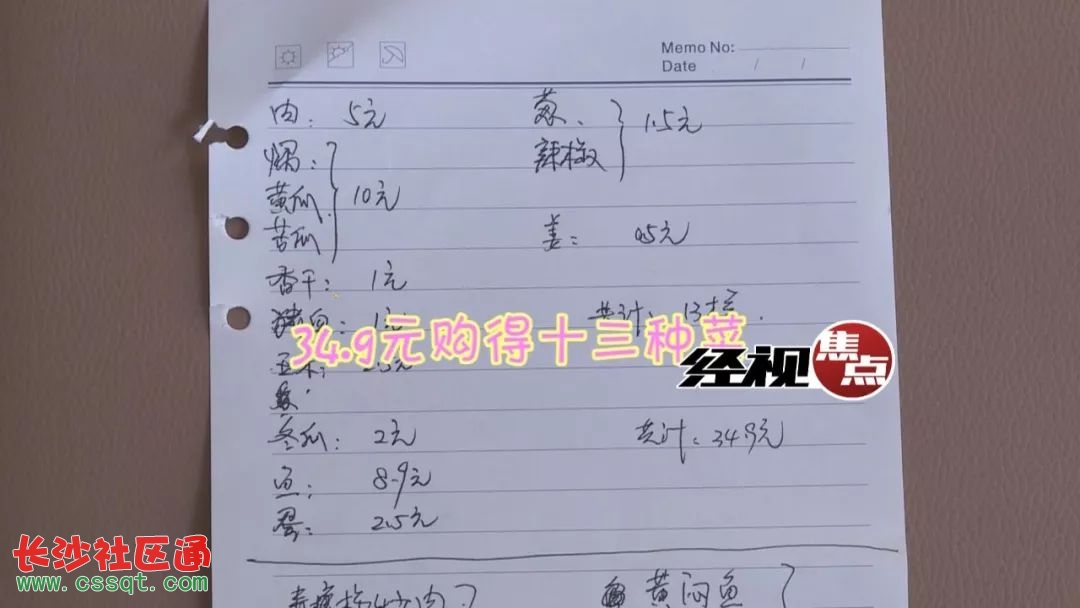 Memo No:
Date / /
肉： 5元
黄瓜 10元
苦瓜
香干： 1元
猪血： 1元
冬瓜： 2元
鱼： 8.9元
蛋： 2.5元
辣椒 1.5元
姜： 0.5元
共计： 13
共计：34.9元
34.9元购得十三种菜
经视
焦点
黄闷鱼
长沙社区通
www.cssqt.com